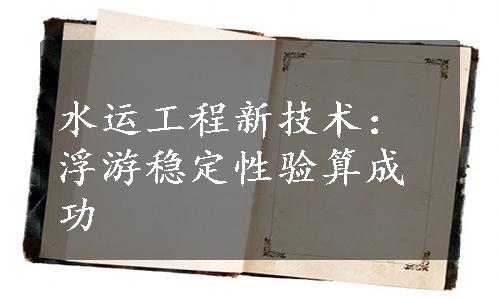 水运工程新技术：
浮游稳定性验算成
功